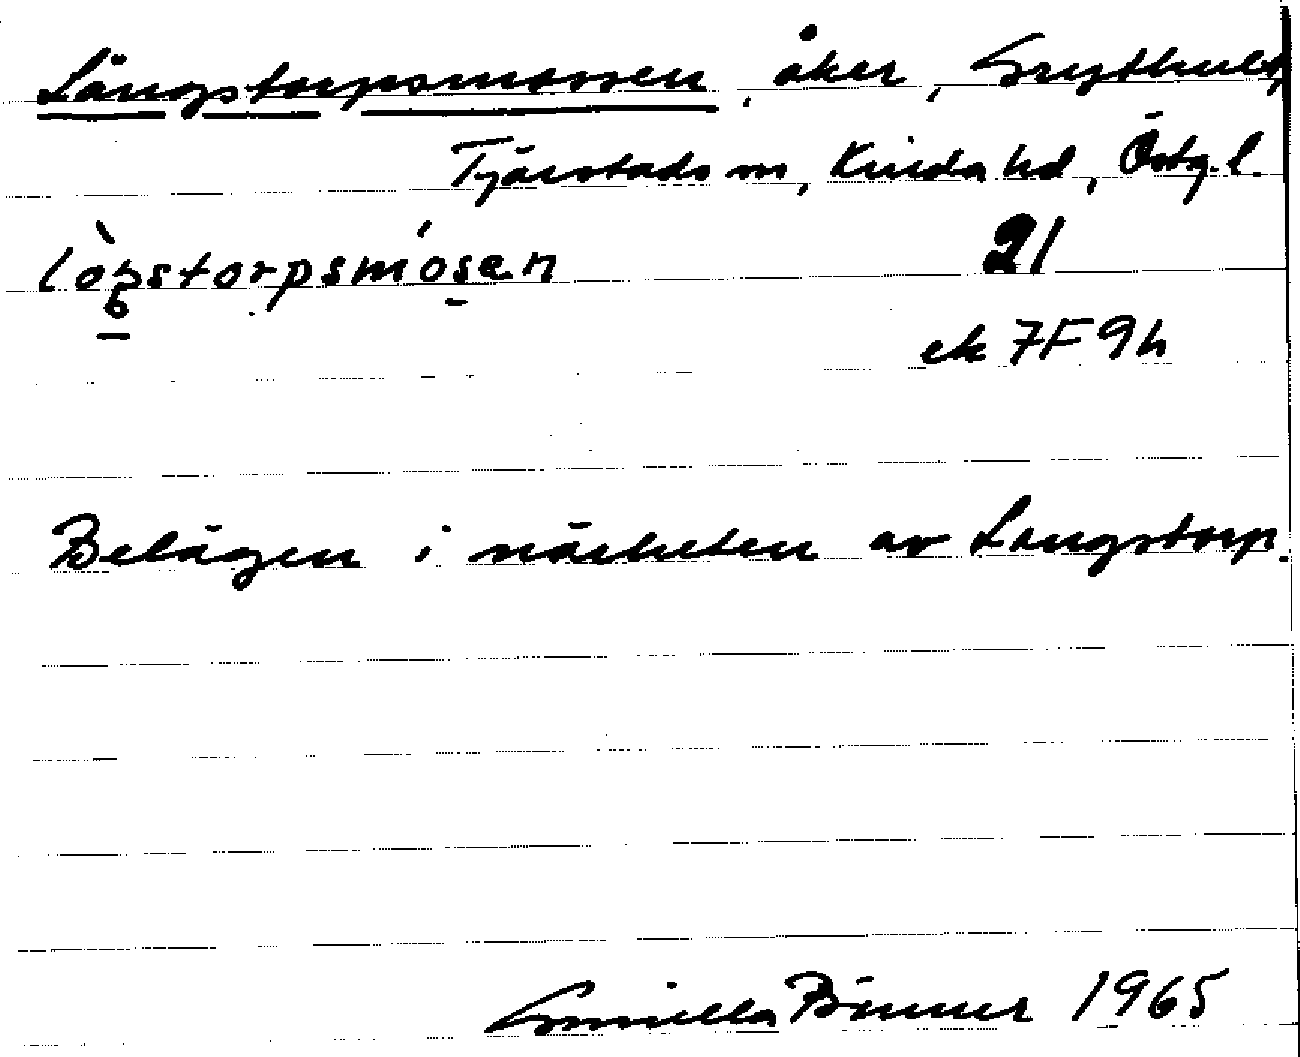 Långstorpsmossen, åker, Grythult,
Tjärstads sn, Kinda hd, Östg. l.
21
ek 7F 9h
Belägen i närheten av Långstorp.
Gunilla Bönner 1965